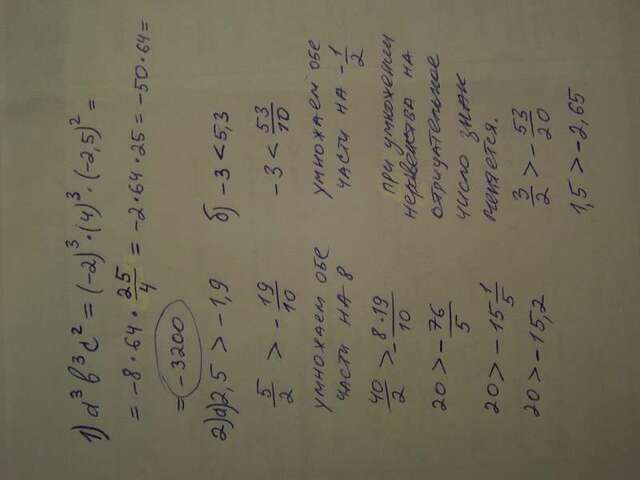 1) a³b³c² = (-2)³·(4)³·(-2,5)² =
= -8·64·25/4 = -2·64·25 = -50·64 =
= -3200
2) а) 2,5 > -1,9
5/2 > -19/10
умножаем обе
части на 8
40/2 > -8·19/10
20 > -76/5
20 > -15 1/5
20 > -15,2
б) -3 < 5,3
-3 < 53/10
умножаем обе
части на -1/2
при умножении
неравенства на
отрицательное
число знак
меняется.
3/2 > -53/20
1,5 > -2,65